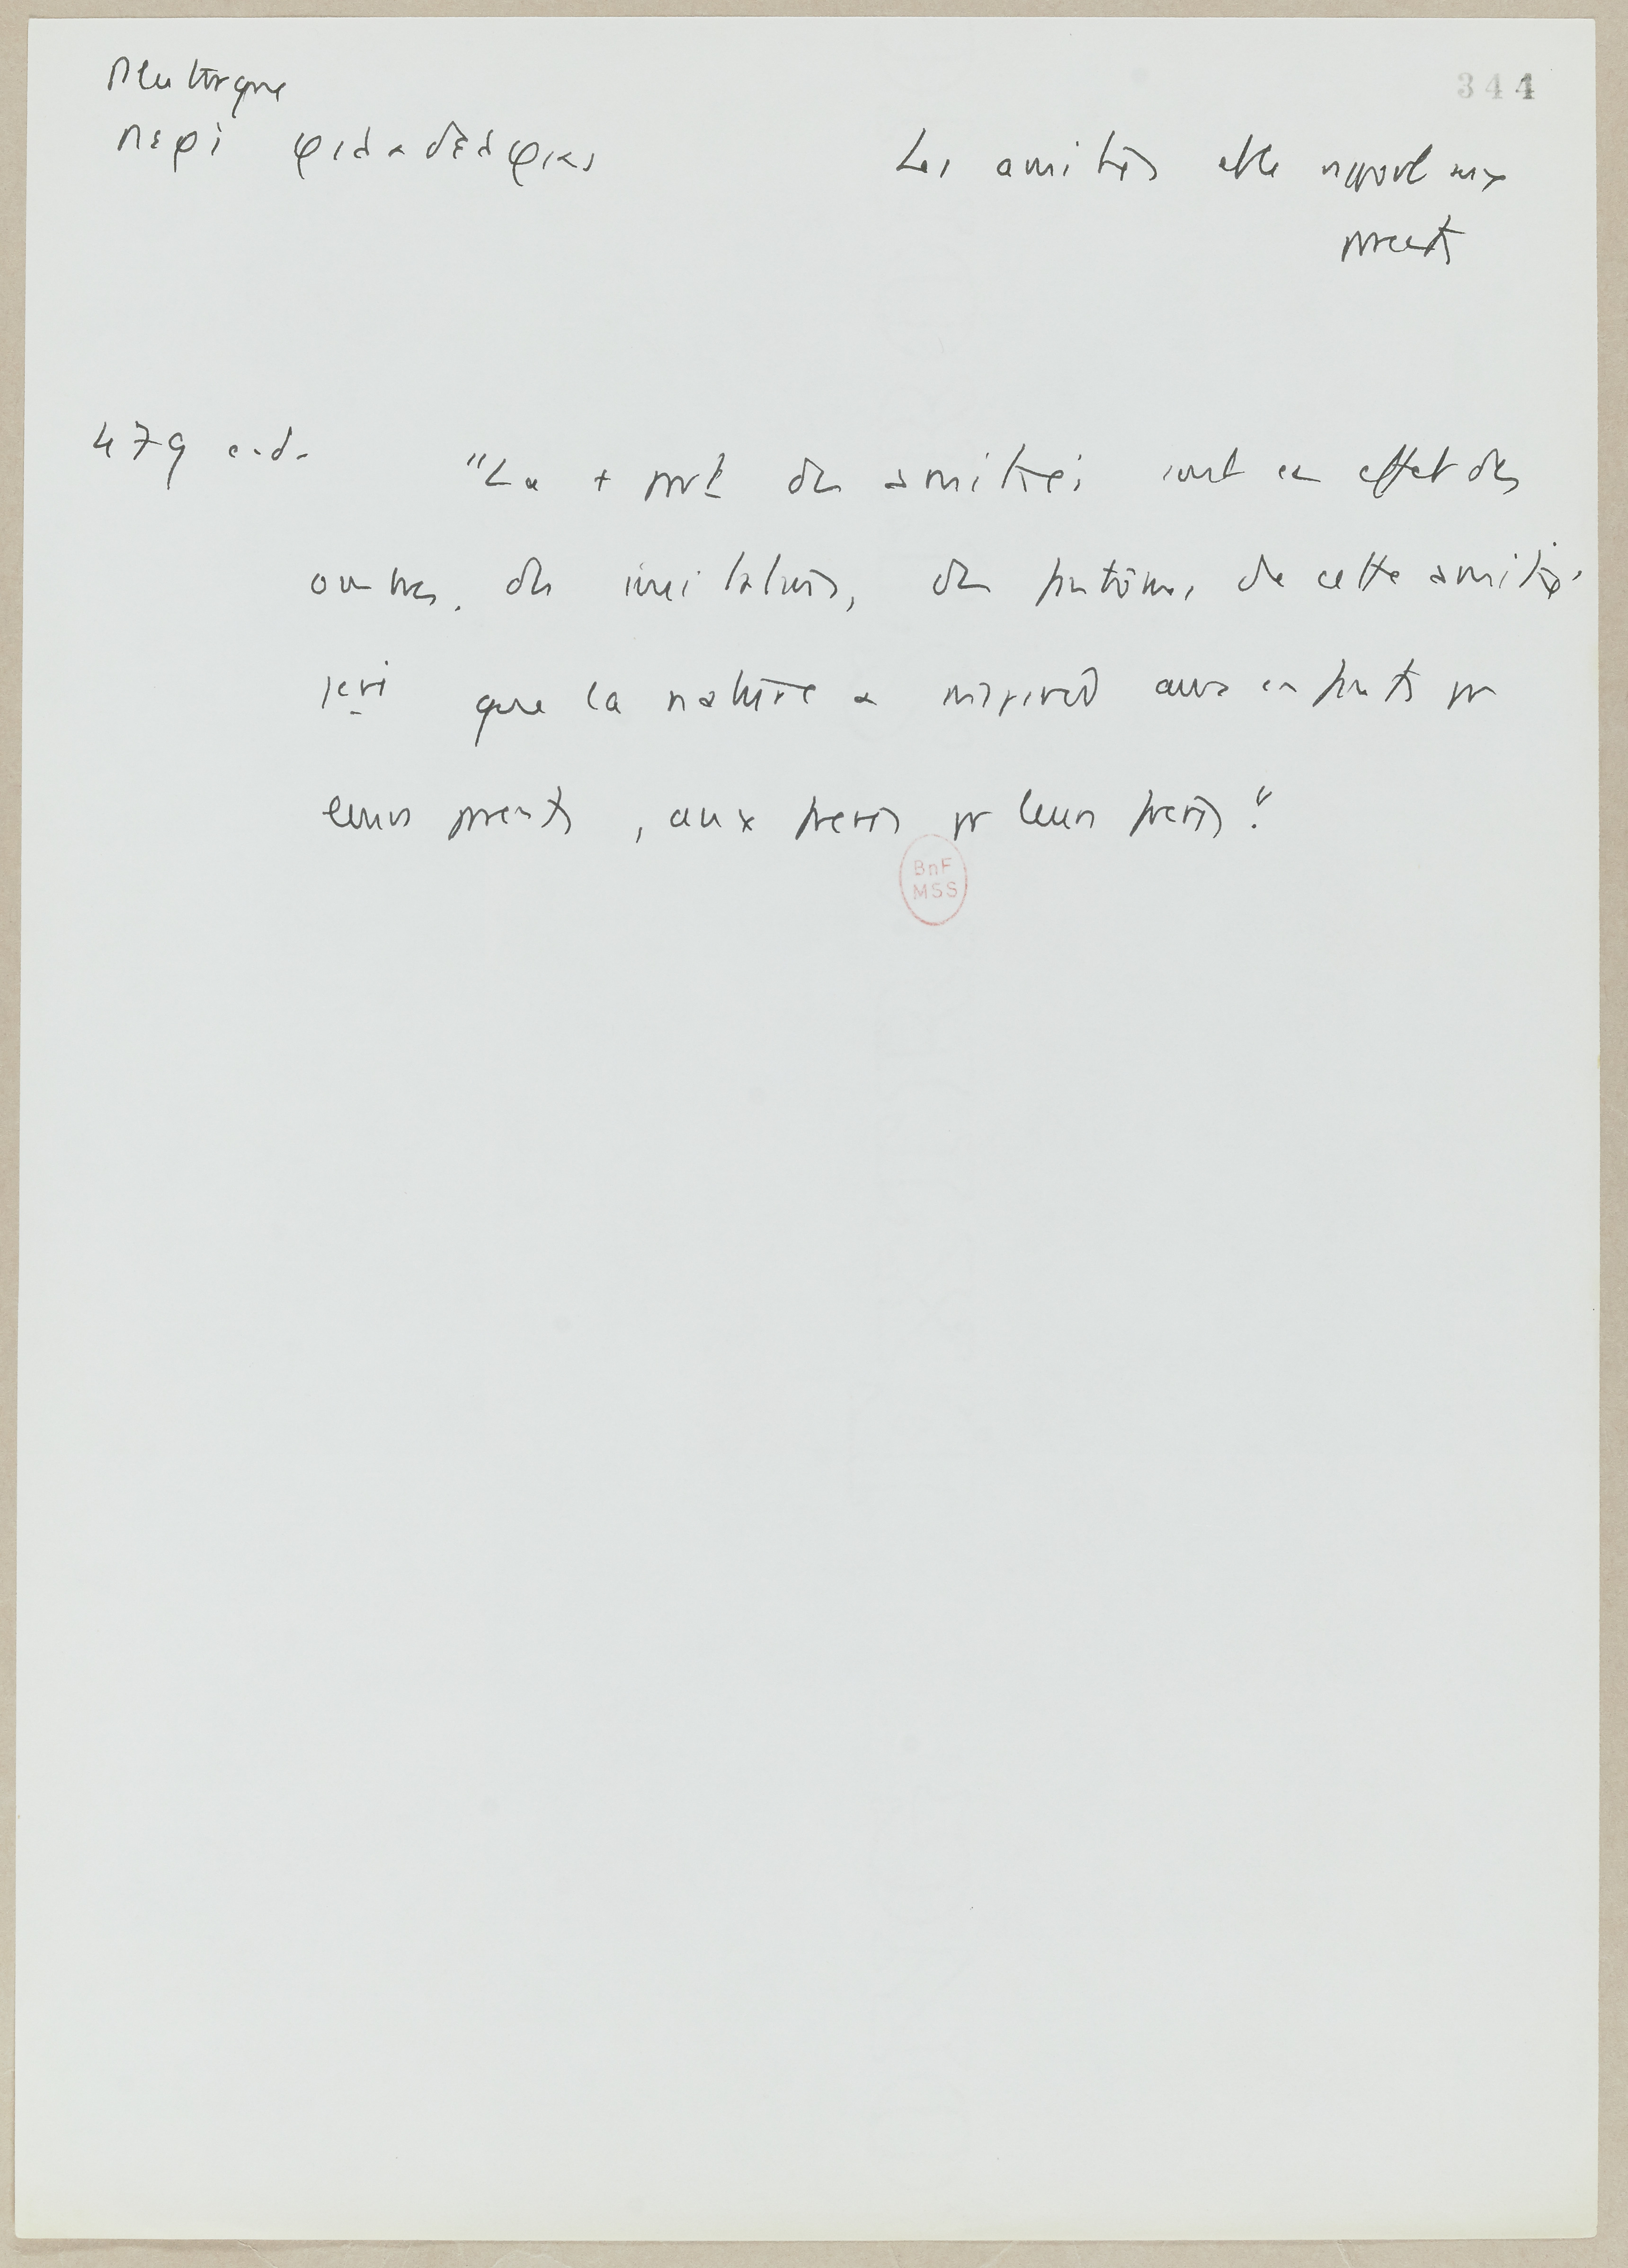 Plutarque
344
περὶ φιλαδελφιας
Les amitiés et le rapport aux
parents
479 c.d.
"La + part des amitiés sont en effet des
ombres, des imitations, des fantômes de cette amitié
que la nature a inspirée aux enfants pr
leurs parents, aux frères pr leurs frères."
BnF
MSS